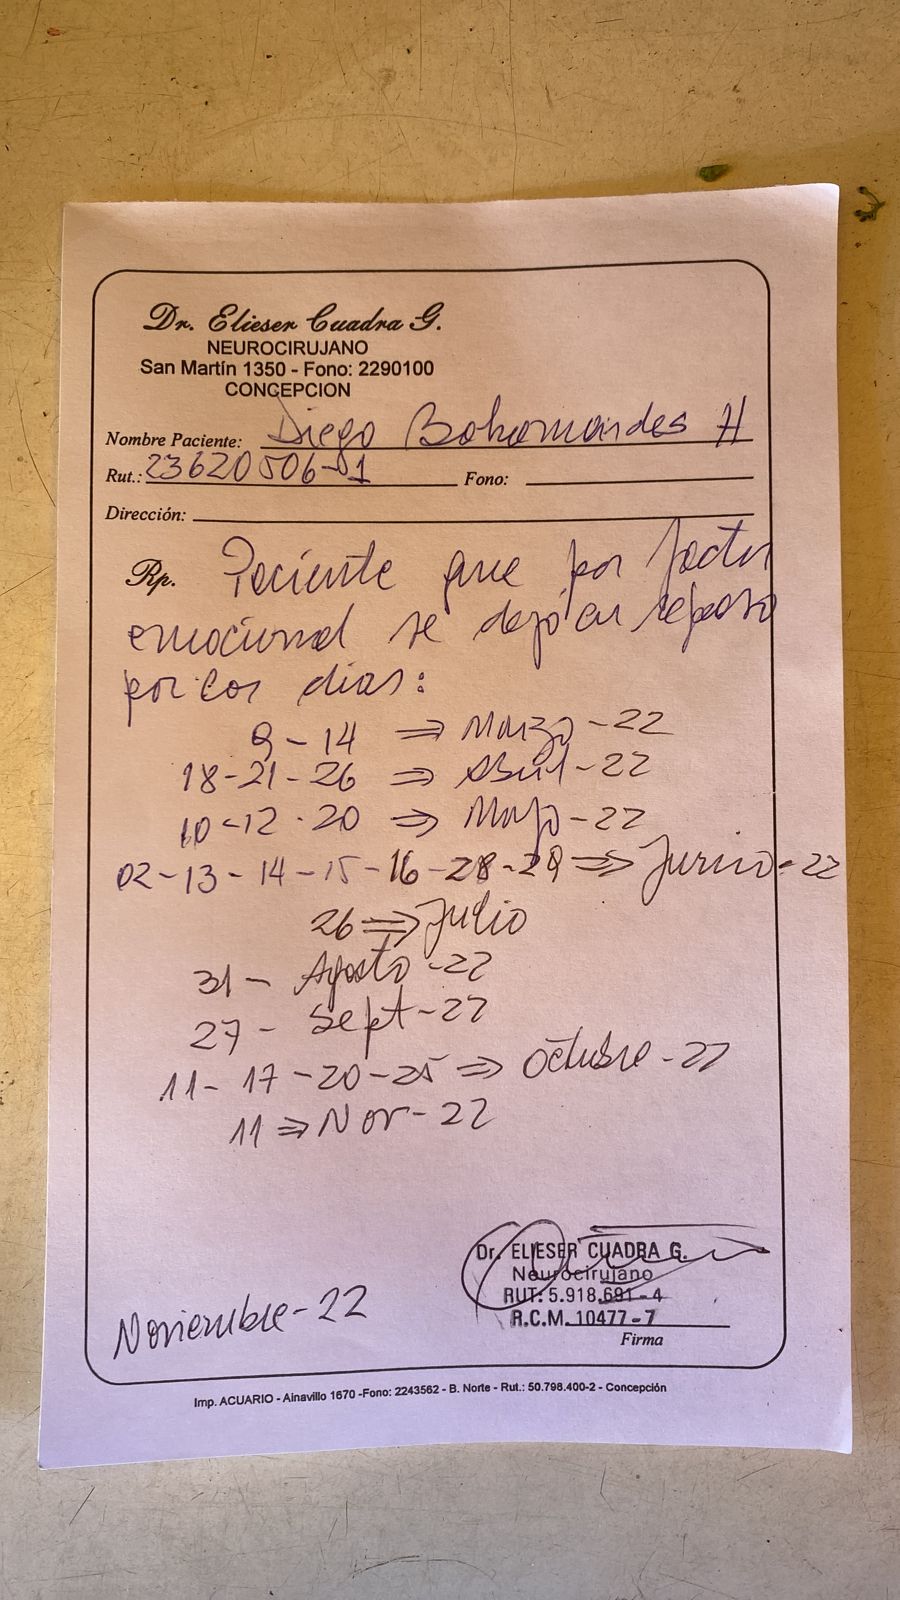 Dr. Elieser Cuadra G.
NEUROCIRUJANO
San Martín 1350 - Fono: 2290100
CONCEPCION
Nombre Paciente: Diego Bahamondes H
Rut.: 23620506-1 Fono:
Dirección:
Rp. Paciente que por factor
emocional se dejó en reposo
por los dias:
9 - 14 ⇒ Marzo - 22
18 - 21 - 26 ⇒ Abril - 22
10 - 12 - 20 ⇒ Mayo - 22
02 - 13 - 14 - 15 - 16 - 28 - 29 ⇒ Junio - 22
26 ⇒ Julio
31 - Agosto - 22
27 - Sept - 22
11 - 17 - 20 - 25 ⇒ Octubre - 22
11 ⇒ Nov - 22
Dr. ELIESER CUADRA G.
Neurocirujano
RUT: 5.918.691 - 4
R.C.M. 10477 - 7
Noviembre - 22
Firma
Imp. ACUARIO - Ainavillo 1670 -Fono: 2243562 - B. Norte - Rut.: 50.798.400-2 - Concepción